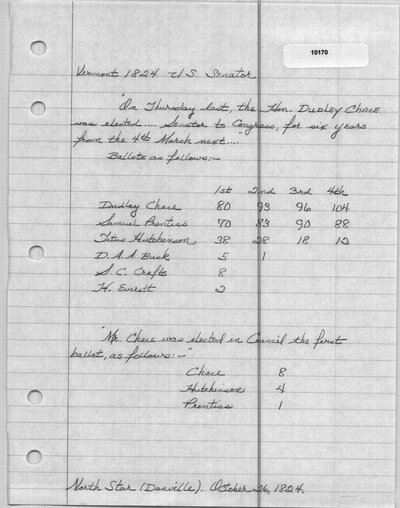 10170
Vermont 1824 U.S. Senator
"On Thursday last, the Hon. DUDLEY CHACE
was elected.... Senator to Congress, for six years
from the 4th March next...."
Ballots as follows:—
1st 2nd 3rd 4th
Dudley Chace 80 93 96 104
Samuel Prentiss 70 83 90 88
Titus Hutchinson 38 28 18 12
D. A. A. Buck 5 1
S. C. Crafts 8
H. Everett 2
"Mr. Chace was elected in Council the first
ballot, as follows:—"
Chace 8
Hutchinson 4
Prentiss 1
North Star (Danville). October 26, 1824.